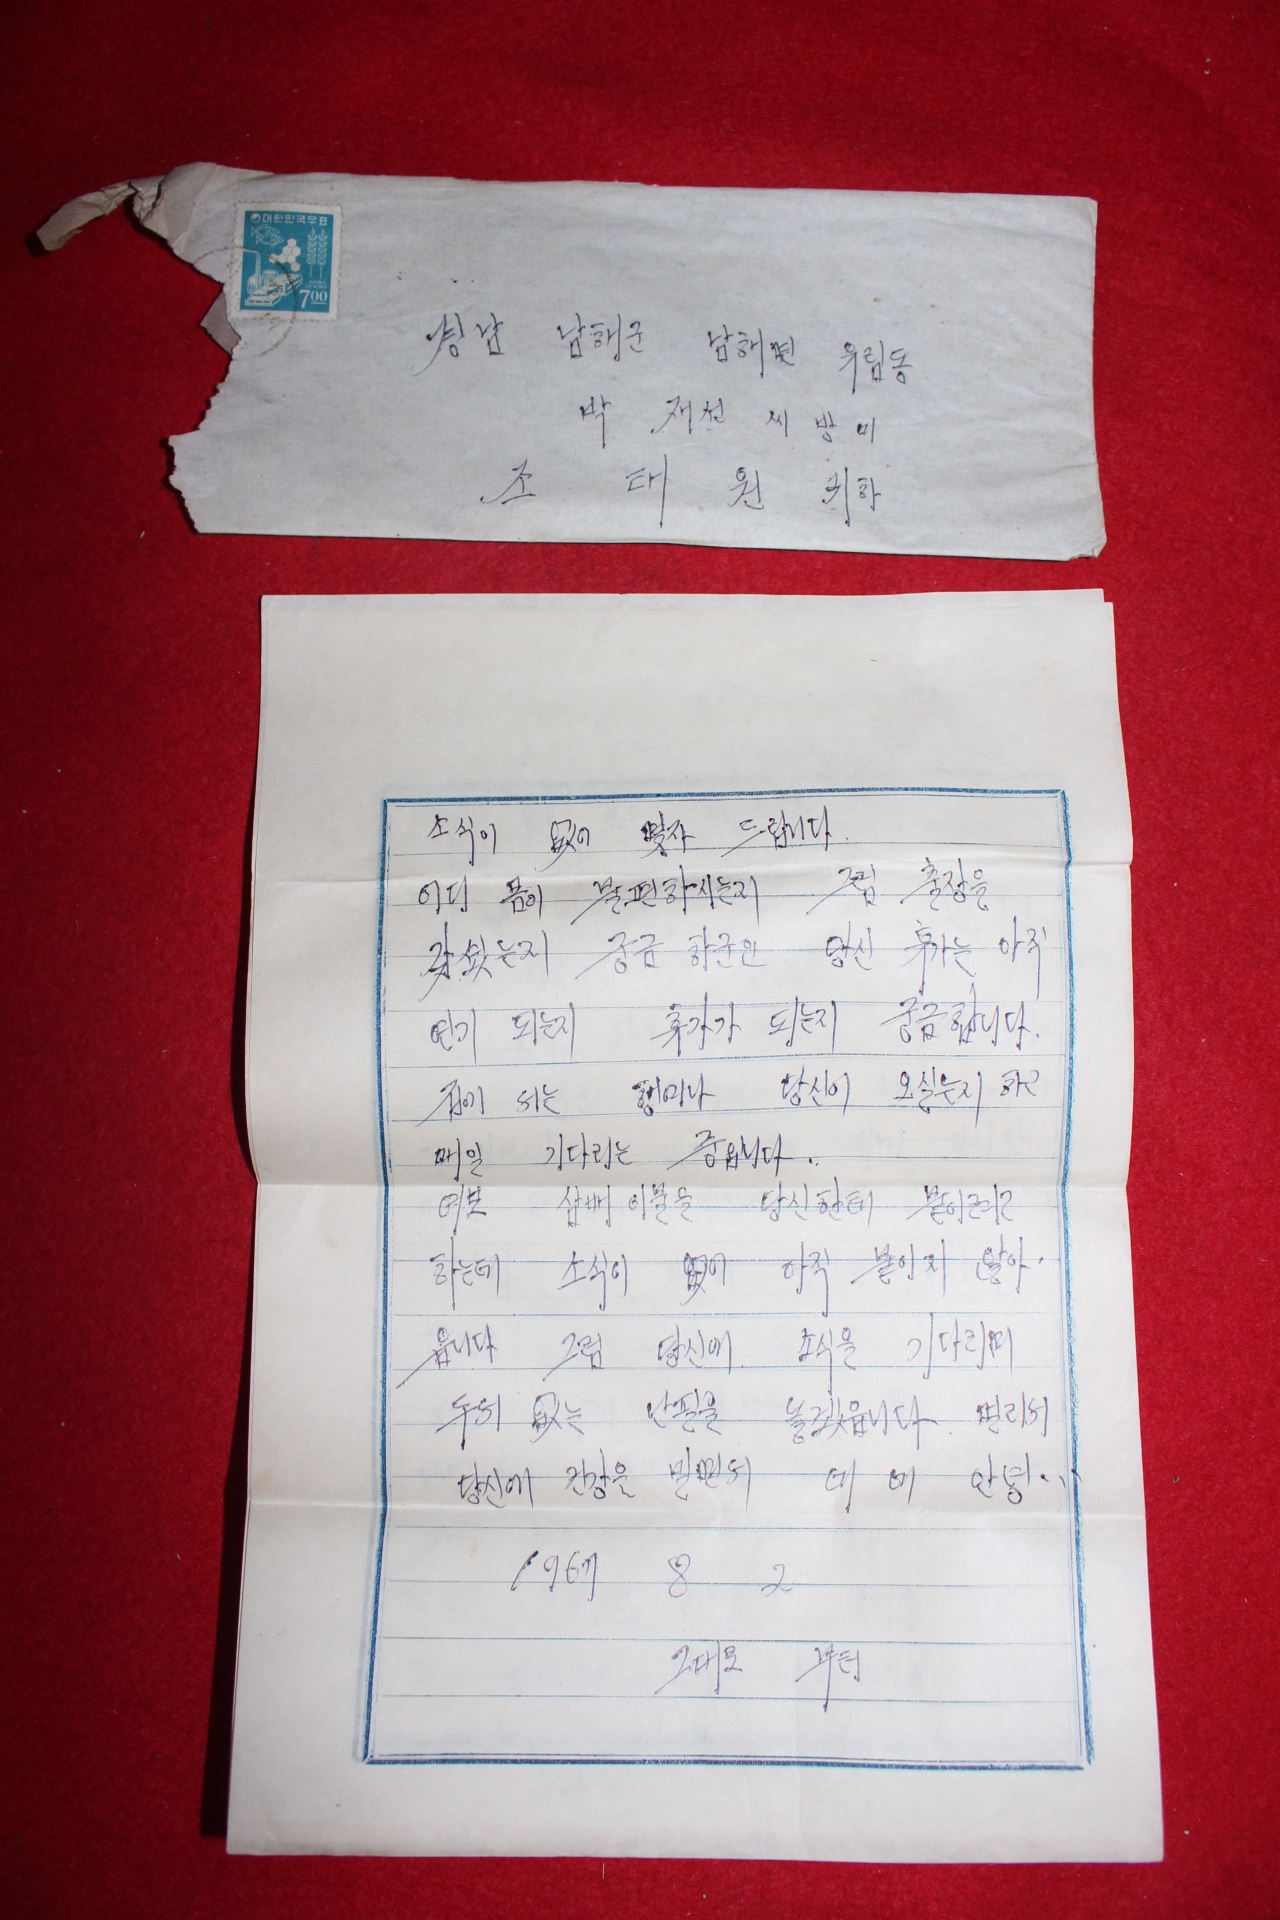 대한민국우표
7 00
경남 남해군 남해면 우림동
박 재선 씨 방 미
조 대 원 귀하
소식이 없어 몇자 드립니다.
어디 몸이 불편하시는지 그럼 출장을
갖섰는지 궁금 하군요 당신 휴가는 아직
연기 되는지 휴가가 되는지 궁금합니다.
집에 서는 행여나 당신이 오실는지 하고
매일 기다리는 중입니다..
여보 삼베 이불을 당신한테 붙이려고
하는데 소식이 없어 아직 붙이지 않아
읍니다 그럼 당신에 소식을 기다리며
두서 없는 난필을 놓겠읍니다 멀리서
당신에 건강을 빌면서 안녕...
1967 8 2
부터